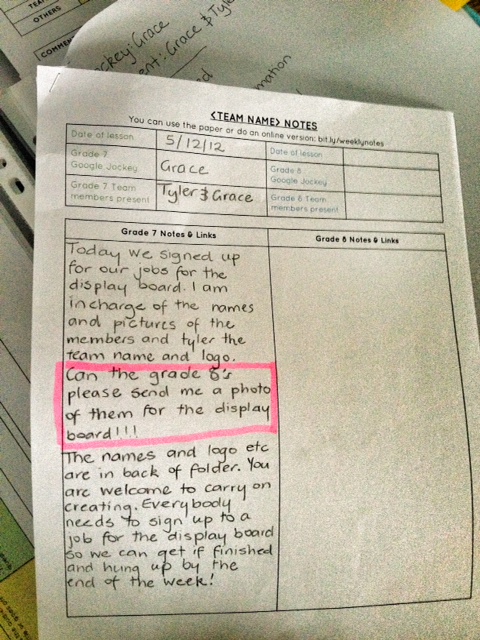 TEA
OTHERS
COMMEN
ockey: Grace
ent: Grace & Tyle
mation
<TEAM NAME> NOTES
You can use the paper or do an online version: bit.ly/weeklynotes
Date of lesson 5/12/12 Date of lesson
Grade 7 Google Jockey Grace Grade 8 Google Jockey
Grade 7 Team members present Tyler & Grace Grade 8 Team members present
Grade 7 Notes & Links Grade 8 Notes & Links
Today we signed up
for our jobs for the
display board. I am
incharge of the names
and pictures of the
members and tyler the
team name and logo.
Can the grade 8's
please send me a photo
of them for the display
board!!!
The names and logo etc
are in back of folder. You
are welcome to carry on
creating. Everybody
needs to sign up to a
job for the display board
so we can get if finished
and hung up by the
end of the week!